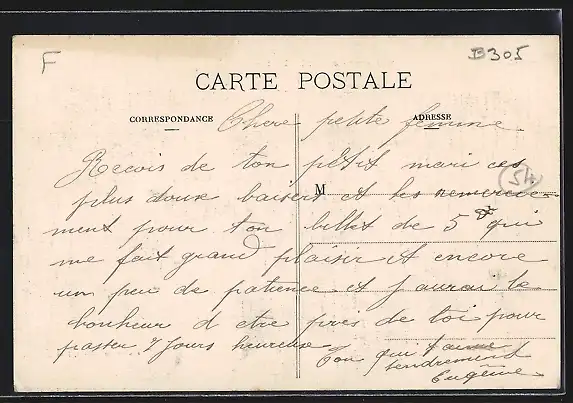 F
B305
CARTE POSTALE
CORRESPONDANCE
ADRESSE
Chere petite femme
Recois de ton petit mari ces
M
plus doux baisers et les remercie-
ment pour ton billet de 5 qui
me fait grand plaisir et encore
un peu de patience et j aurai le
bonheur d etre pres de toi pour
passer 7 jours heureuse.
Ton qui t'aime
tendrement
Eugène